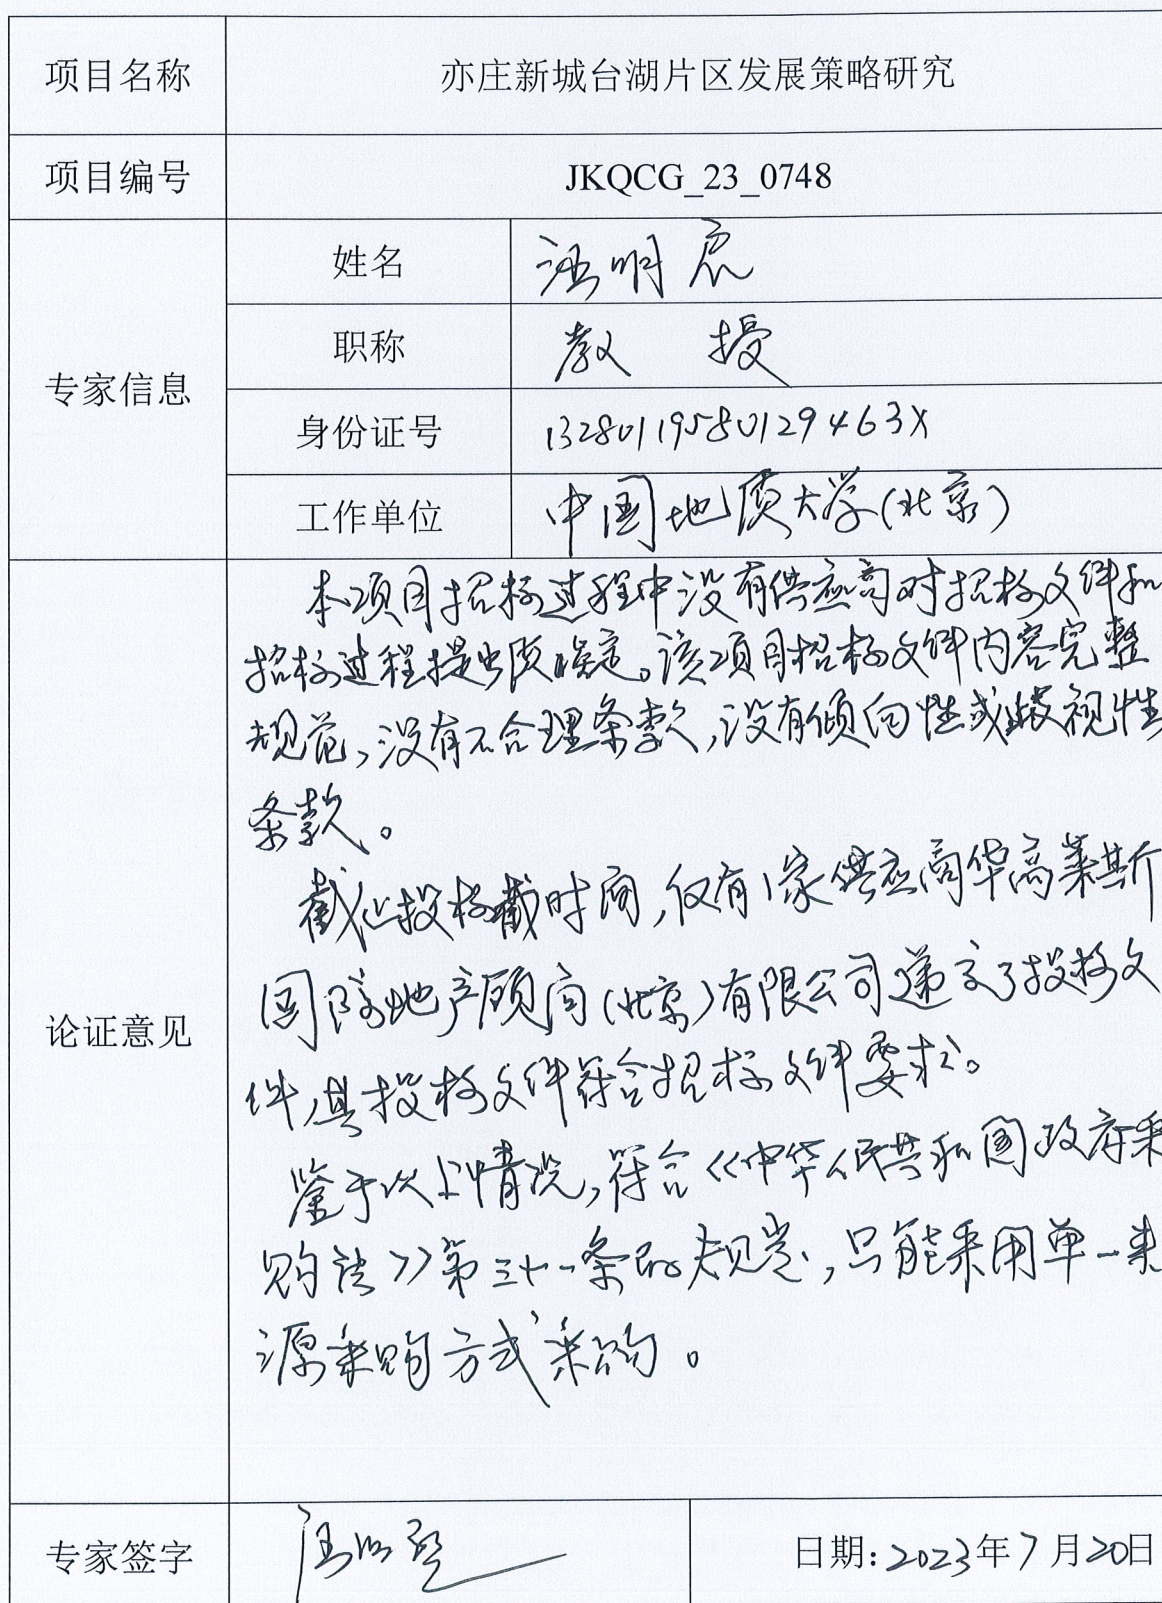 项目名称 亦庄新城台湖片区发展策略研究
项目编号 JKQCG_23_0748
专家信息
姓名 汪明
职称 教 授
身份证号 13280119580129463X
工作单位 中国地质大学(北京)
论证意见
本项目招标过程中没有供应商对招标文件和
招标过程提出质疑。该项目招标文件内容完整
规范,没有不合理条款,没有倾向性或歧视性
条款。
截止投标截时间,仅有1家供应商华高莱斯
国际地产顾问(北京)有限公司递交了投标文
件,其投标文件符合招标文件要求。
鉴于以上情况,符合《中华人民共和国政府采
购法》第三十一条的规定,只能采用单一来
源采购方式采购。
专家签字
日期:2023年7月20日